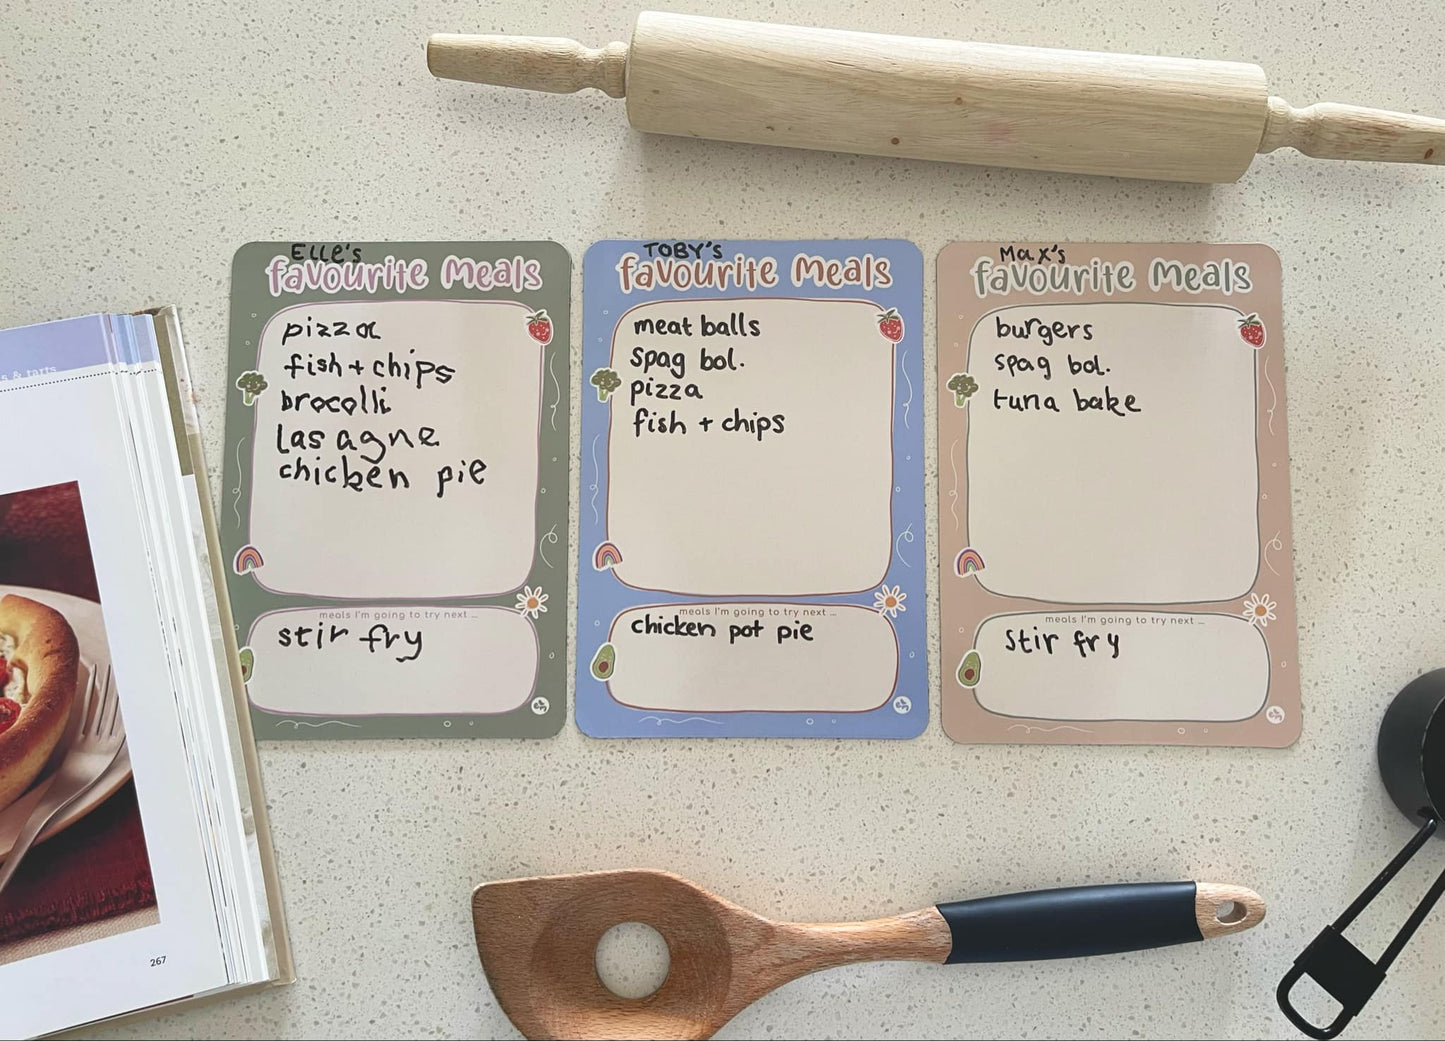 s & tarts
267
Elle's
favourite Meals
pizza
fish + chips
brocolli
lasagne
chicken pie
meals I'm going to try next ...
stir fry
TOBY'S
favourite Meals
meat balls
spag bol.
pizza
fish + chips
meals I'm going to try next ...
chicken pot pie
Max's
favourite Meals
burgers
spag bol.
tuna bake
meals I'm going to try next ...
stir fry